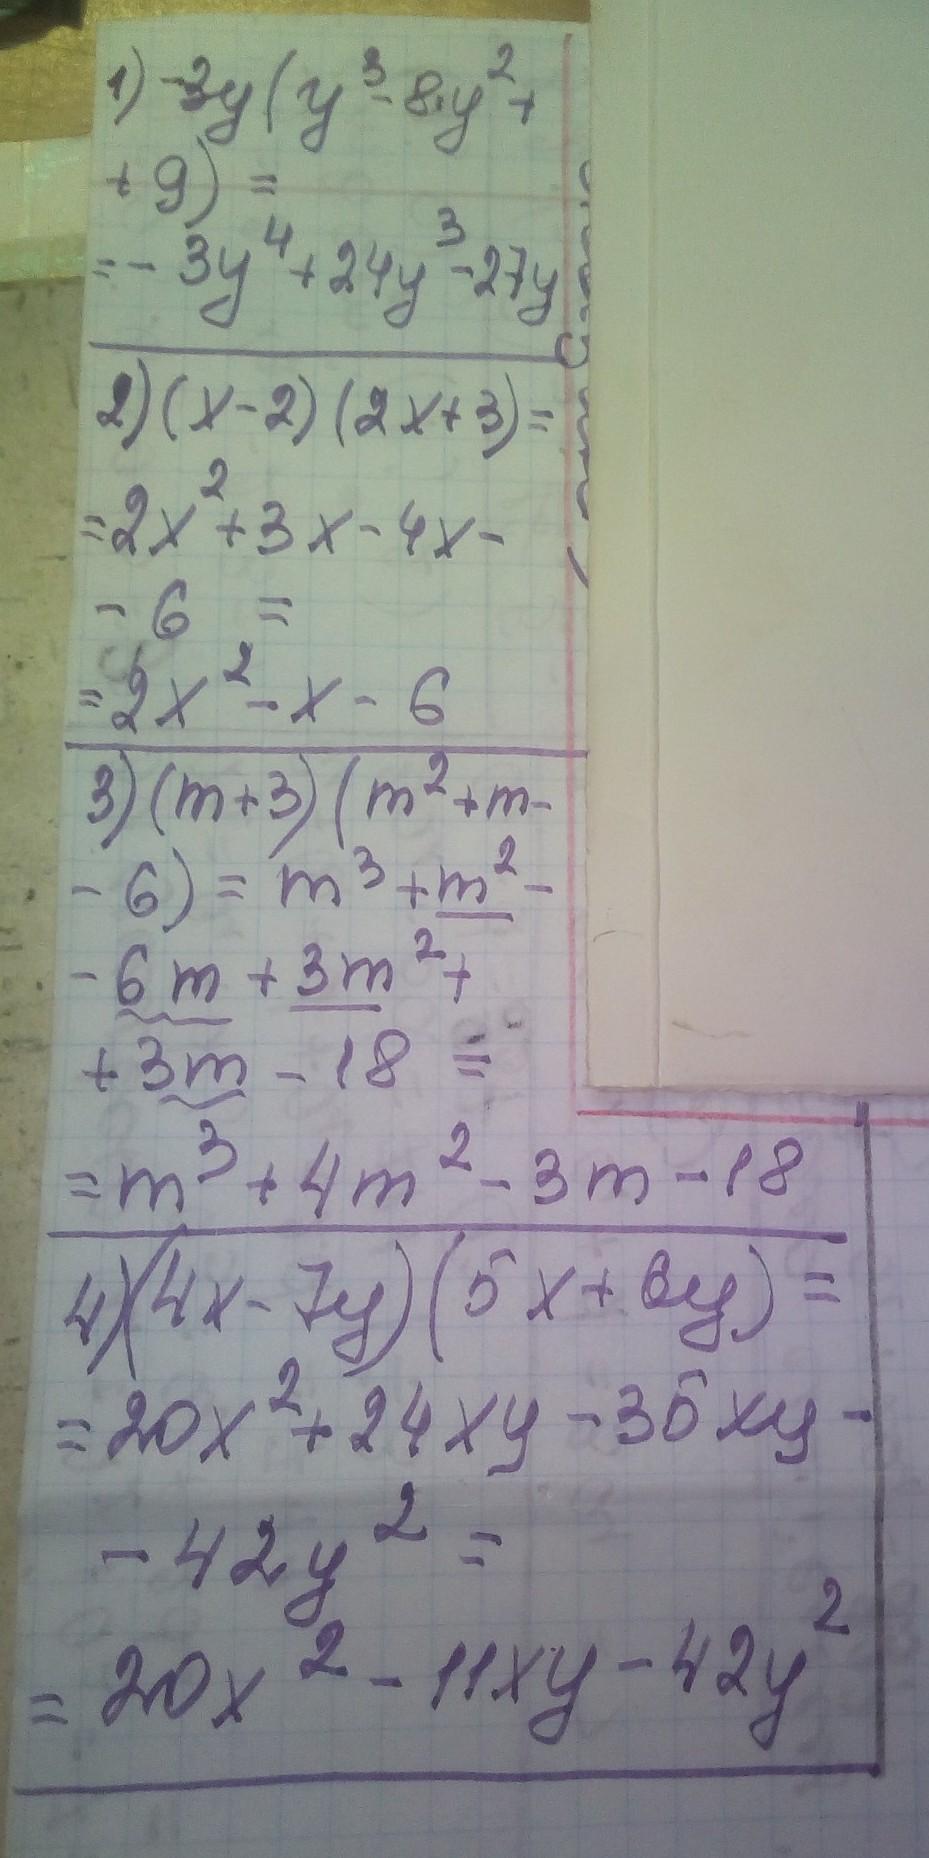 1) -3y(y³-8y²+
+9) =
=-3y⁴+24y³-27y
2) (x-2)(2x+3)=
=2x²+3x-4x-
-6 =
=2x²-x-6
3) (m+3)(m²+m-
-6) = m³+m²-
-6m+3m²+
+3m-18 =
=m³+4m²-3m-18
4) (4x-7y)(5x+6y)=
=20x²+24xy-35xy-
-42y²=
=20x²-11xy-42y²